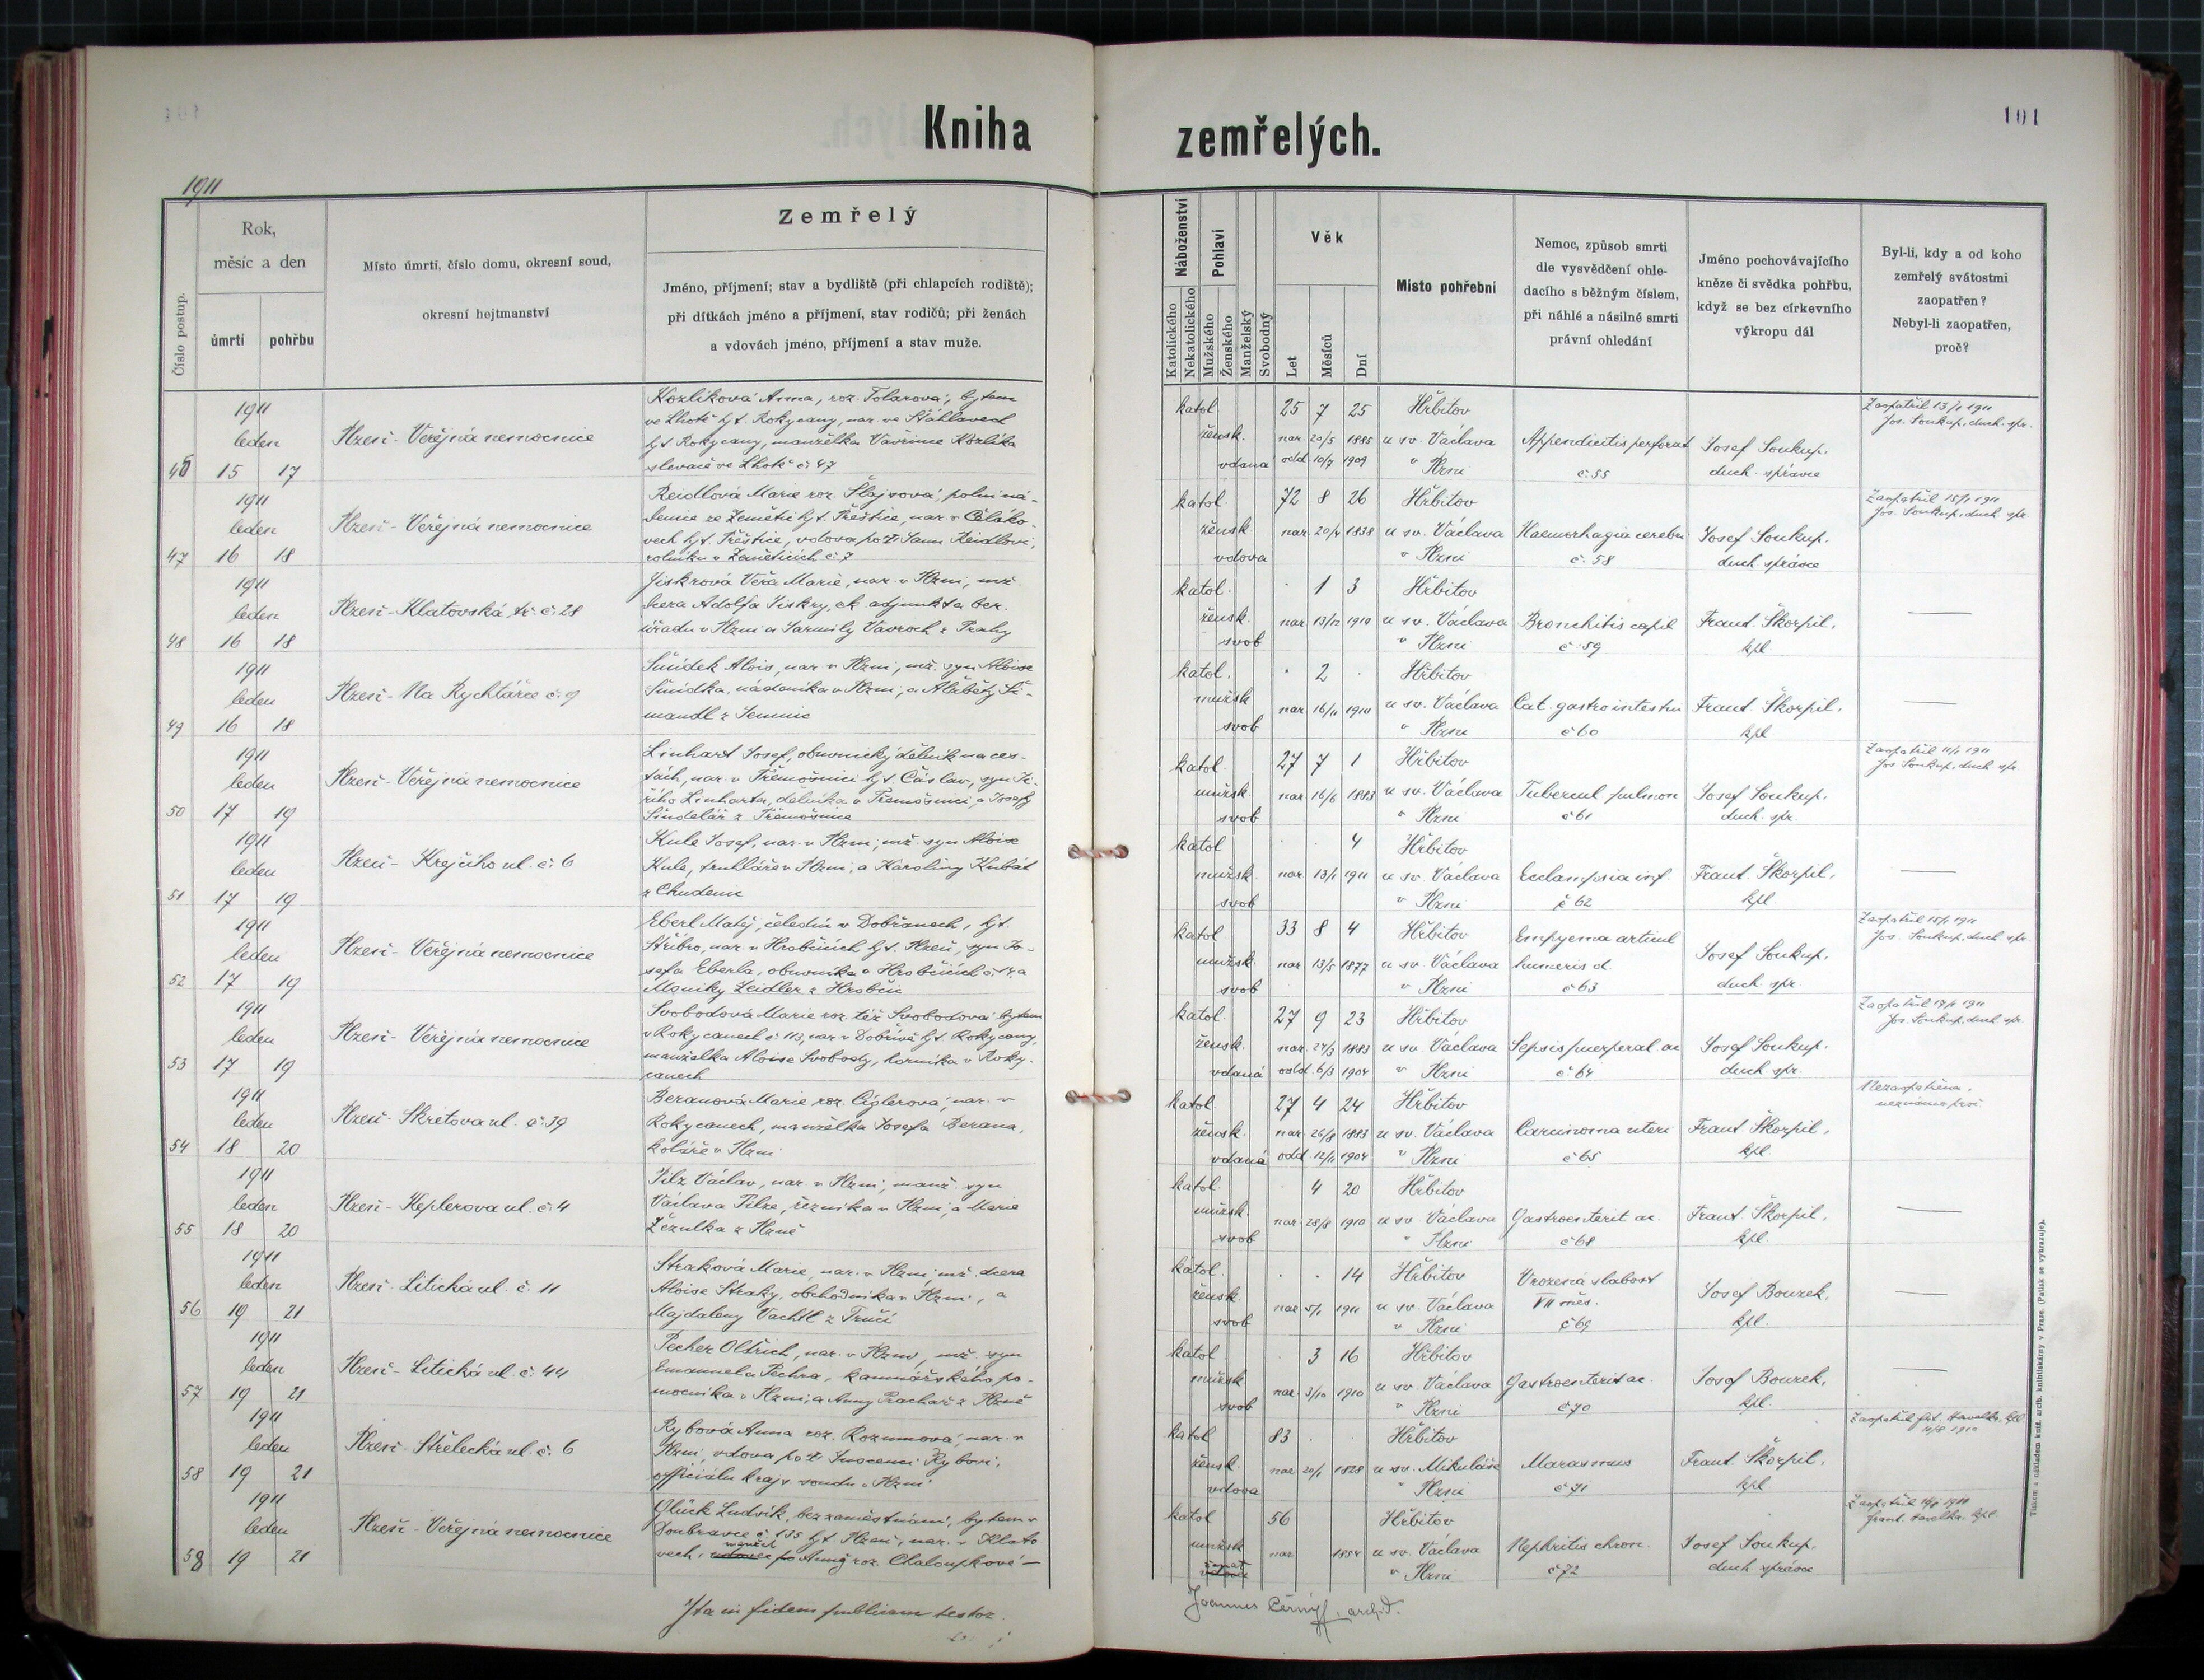 Kniha zemřelých.
101
1911
Číslo postup.
Rok,
měsíc a den
úmrtí
pohřbu
Místo úmrtí, číslo domu, okresní soud,
okresní hejtmanství
Zemřelý
Jméno, příjmení; stav a bydliště (při chlapcích rodiště);
při dítkách jméno a příjmení, stav rodičů; při ženách
a vdovách jméno, příjmení a stav muže.
Náboženství
Katolického
Nekatolického
Pohlaví
Mužského
Ženského
Manželský
Svobodný
Věk
Let
Měsíců
Dní
Místo pohřební
Nemoc, způsob smrti
dle vysvědčení ohle-
dacího s běžným číslem,
při náhlé a násilné smrti
právní ohledání
Jméno pochovávajícího
kněze či svědka pohřbu,
když se bez církevního
výkropu dál
Byl-li, kdy a od koho
zemřelý svátostmi
zaopatřen?
Nebyl-li zaopatřen,
proč?
46
1911
leden
15 17
Plzeň - Veřejná nemocnice
Kozlíková Anna, roz. Tolarová, bytem
ve Lhotě hjt. Rokycany, nar. ve Šťáhlavech
hjt Rokycany, manželka Vavřince Kozlíka
slevače ve Lhotě č. 47
katol
žensk.
vdaná
25 7 25
nar. 20/5 1885
odd 10/7 1909
Hřbitov
u sv. Václava
v Plzni
Appendicitis perforat
č. 55
Josef Soukup,
duch. správce
Zaopatřil 13/1 1911
Jos. Soukup, duch. spr.
47
1911
leden
16 18
Plzeň - Veřejná nemocnice
Reidlová Marie roz. Šlajsová, polní ná-
denice ze Zemětic hjt. Přeštice, nar. v
vech hjt. Přeštice, vdova po † Janu Reidlovi,
rolníku v Zeměticích č. 7
katol.
žensk.
vdova
72 8 26
nar. 20/4 1838
Hřbitov
u sv. Václava
v Plzni
Haemorhagia cerebri
č. 58
Josef Soukup.
duch správce
Zaopatřil 15/1 1911
Jos. Soukup, duch. spr.
48
1911
leden
16 18
Plzeň - Klatovská tř. č. 28
Jiskrová Věra Marie, nar. v Plzni, mž.
dcera Adolfa Jiskry, ck. adjunkta ber.
úřadu v Plzni a Jarmily Vavroch z Prahy
katol.
žensk.
svob
1 3
nar 13/12 1910
Hřbitov
u sv. Václava
v Plzni
Bronchitis capil
č. 59
Frant. Škorpil,
kpl
49
1911
leden
16 18
Plzeň - Na Rychtářce č. 9
Šmídek Alois, nar. v Plzni, mž. syn Aloise
Šmídka, nádeníka v Plzni, a Alžběty Ši-
mandl z
katol.
mužsk
svob
2
nar 16/11 1910
Hřbitov
u sv. Václava
v Plzni
Cat. gastrointestin
č 60
Frant. Škorpil.
kpl
50
1911
leden
17 19
Plzeň - Veřejná nemocnice
Linhart Josef, obuvnický dělník na ces-
tách, nar. v Třemošnici hjt. Čáslav, syn Ji-
řího Linharta, dělníka v Třemošnici, a Josefy
Šindelář z Třemošnice
katol.
mužsk.
svob
27 7 1
nar 16/6 1883
Hřbitov
u sv. Václava
v Plzni
Tubercul pulmon
č 61
Josef Soukup.
duch. spr.
Zaopatřil 11/1 1911
Jos Soukup, duch. spr.
51
1911
leden
17 19
Plzeň - Krejčího ul. č. 6
Kule Josef, nar. v Plzni, mž. syn Aloise
Kule, truhláře v Plzni, a Karoliny Kubát
z Chudenic
katol
mužsk.
svob
4
nar. 13/1 1911
Hřbitov
u sv. Václava
v Plzni
Ecclampsia inf.
č 62
Frant. Škorpil,
kpl
52
1911
leden
17 19
Plzeň - Veřejná nemocnice
Eberl Matěj, čeledín v Dobřanech, hjt.
Stříbro, nar. v Hrobčicích hjt. Plzeň, syn Jo-
sefa Eberla, obuvníka v Hrobčicích č 14 a
Moniky Zeidler z Hrobčic
katol
mužsk.
svob
33 8 4
nar. 13/5 1877
Hřbitov
u sv. Václava
v Plzni
Empyema articul
humeris d.
č 63
Josef Soukup.
duch. spr.
Zaopatřil 15/1 1911
Jos. Soukup, duch. spr.
53
1911
leden
17 19
Plzeň - Veřejná nemocnice
Svobodová Marie roz. též Svobodová bytem
v Rokycanech č 113, nar. v Dobřívě hjt. Rokycany,
manželka Aloise Svobody, horníka v Roky-
canech
katol.
žensk.
vdaná
27 9 23
nar. 24/3 1883
odd. 6/3 1904
Hřbitov
u sv. Václava
v Plzni
Sepsis puerperal. ac
č 64
Josef Soukup.
duch. spr.
Zaopatřil 17/1 1911
Jos. Soukup, duch. spr.
54
1911
leden
18 20
Plzeň - Skretova ul. č. 39
Beranová Marie roz. Ciglerová, nar. v
Rokycanech, manželka Josefa Berana,
koláře v Plzni
katol
žensk.
vdaná
27 4 24
nar. 26/8 1883
odd. 12/11 1904
Hřbitov
u sv. Václava
v Plzni
Carcinoma uteri
č 65
Frant Škorpil,
kpl.
Nezaopatřena,
neznámo proč
55
1911
leden
18 20
Plzeň - Keplerova ul. č. 4
Pilz Václav, nar. v Plzni, manž. syn
Václava Pilze, řezníka v Plzni, a Marie
Žezulka z Plzně
katol.
mužsk.
svob
4 20
nar. 28/8 1910
Hřbitov
u sv. Václava
v Plzni
Gastroenterit ac.
č 68
Frant. Škorpil,
kpl.
56
1911
leden
19 21
Plzeň - Litická ul. č. 11
Straková Marie, nar. v Plzni, mž. dcera
Aloise Straky, obchodníka v Plzni, a
Majdaleny Vachtl z
katol.
žensk.
svob
14
nar 5/1 1911
Hřbitov
u sv. Václava
v Plzni
Vrozená slabost
VII měs.
č 69
Josef Bouzek,
kpl.
57
1911
leden
19 21
Plzeň - Litická ul. č. 44
Pecher Oldřich, nar. v Plzni, mž. syn
Emanuela Pechra, kamnářského po-
mocníka v Plzni, a Anny Prachař z Plzně
katol
mužsk
svob
3 16
nar. 3/10 1910
Hřbitov
u sv. Václava
v Plzni
Gastroenterit ac.
č 70
Josef Bouzek,
kpl.
58
1911
leden
19 21
Plzeň - Střelecká ul. č. 6
Rybová Anna roz. Rozumová, nar. v
Plzni, vdova po † Inocenci Rybovi,
officiálu kraj. soudu v Plzni
katol
žensk.
vdova
83
nar 20/1 1828
Hřbitov
u sv. Mikuláše
v Plzni
Marasmus
č 71
Frant. Škorpil,
kpl
Zaopatřil frt. Havelka, kpl.
11/8 1910
58
1911
leden
19 21
Plzeň - Veřejná nemocnice
Glück Ludvík, bez zaměstnání, bytem v
Doubravce č. 135 hjt. Plzeň, nar. v Klato
manžel
vech, vdovec po Anně roz. Chaloupkové —
katol
mužsk
ženat
vdovec
56
nar 1854
Hřbitov
u sv. Václava
v Plzni
Nephritis chron.
č 72
Josef Soukup.
duch správce
Zaopatřil 1911
frant. Havelka, kpl.
Ita in fidem publicam testor
Joannes Černý, archid.
Tiskem a nákladem kníž. arcib. knihtiskárny v Praze. (Patisk se vykazuje).